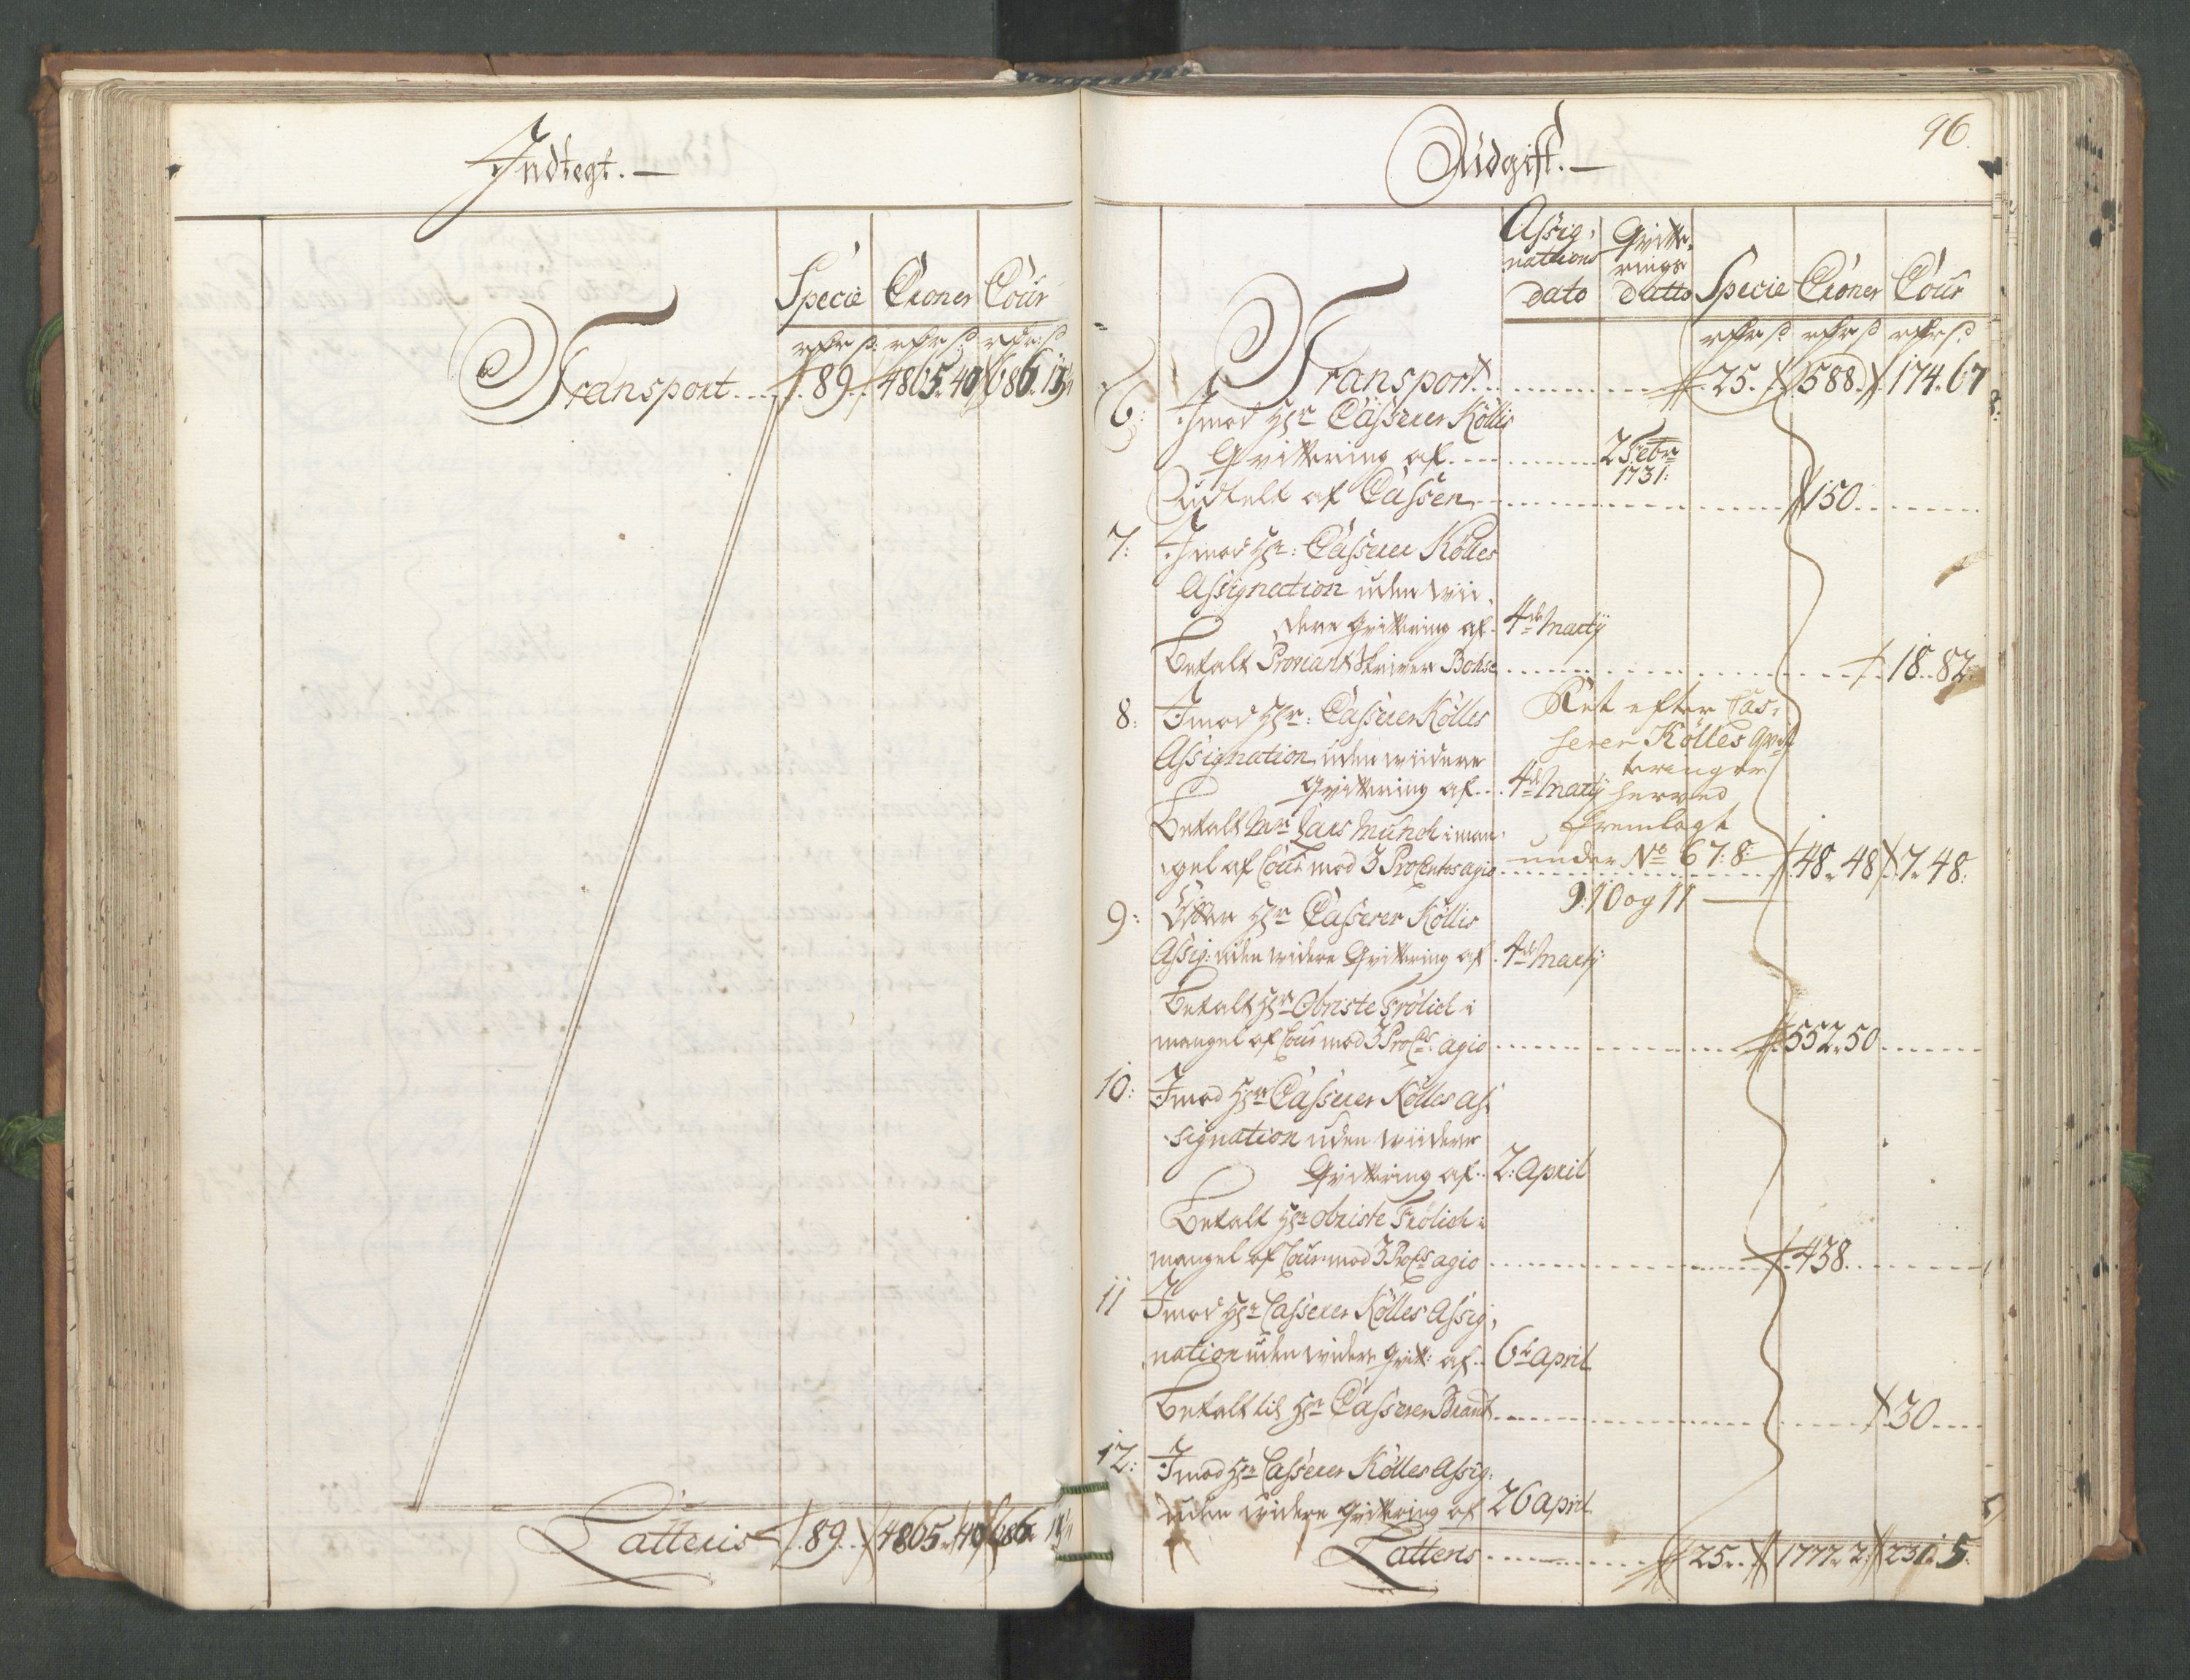 Indtegt. —
Specie Croner Cour
rdr ß: rdr ß rdr: ß
Transport . . . . 89 . . 4865. 40 686. 13½
Latteris 89 . . 4865. 40 686. 13½
96.
Udgift. —
Assig-
nations
dato
Qvitte-
rings
Datto
Specie Croner Cour
rdr ß rdr ß rdr ß
Transport . . . . 25. 588. 174. 67
6: Imod Hr Casserer Kölles
Qvittering af . . . . 2 Febr
1731:
udtelt af Cassen . . . . 150 . . . .
7: Imod Hr: Casserer Kölles
Assignation uden wii-
dere Qvittering af. 4de Marty
Betalt Proviantskriver Bohse . . . . 18. 82.
8: Imod Hr: Casserer Kölles
Assignation uden wiidere
Qvittering af . . 4de Marty
Betalt Mr Lars Munch i man-
gel af Cour mod 3 ProCentos agio . . . . 48. 48 7. 48:
Ret efter Cas-
serer Kölles Qvit-
teringer
herved
fremlagt
under No 6 7: 8:
9: 10 og 11 —
9: Efter Hr Casserer Kölles
Assig: uden widere Qvittering af . 4de Marty
Betalt Hr Obriste Frölich i
mangel af Cour mod 3 ProCto: agio . . . . 552. 50 . . . .
10: Imod Hr Casserer Kölles As-
signation uden wiidere
Qvittering af . . 2: April
Betalt Hr Obriste Frölich i
mangel af Cour mod 3 ProCto agio . . . . 438 . . . .
11 Imod Hr Casserer Kölles Assig-
nation uden widere Qvitt: af . . 6te April
Betalt til Hr Casserer Brant . . . . 30 . . . .
12: Imod Hr Casserer Kölles Assig:
uden widere Qvittering af 26 April
Latteris . . . . 25. . 1777. 2 231. 5: